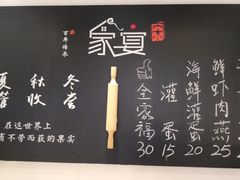 百年传承
家宴
冬尝
秋收
夏
在这世界上
有不劳而获的果实
全家福30
灌蛋15
海鲜灌蛋20
鲜虾肉燕25